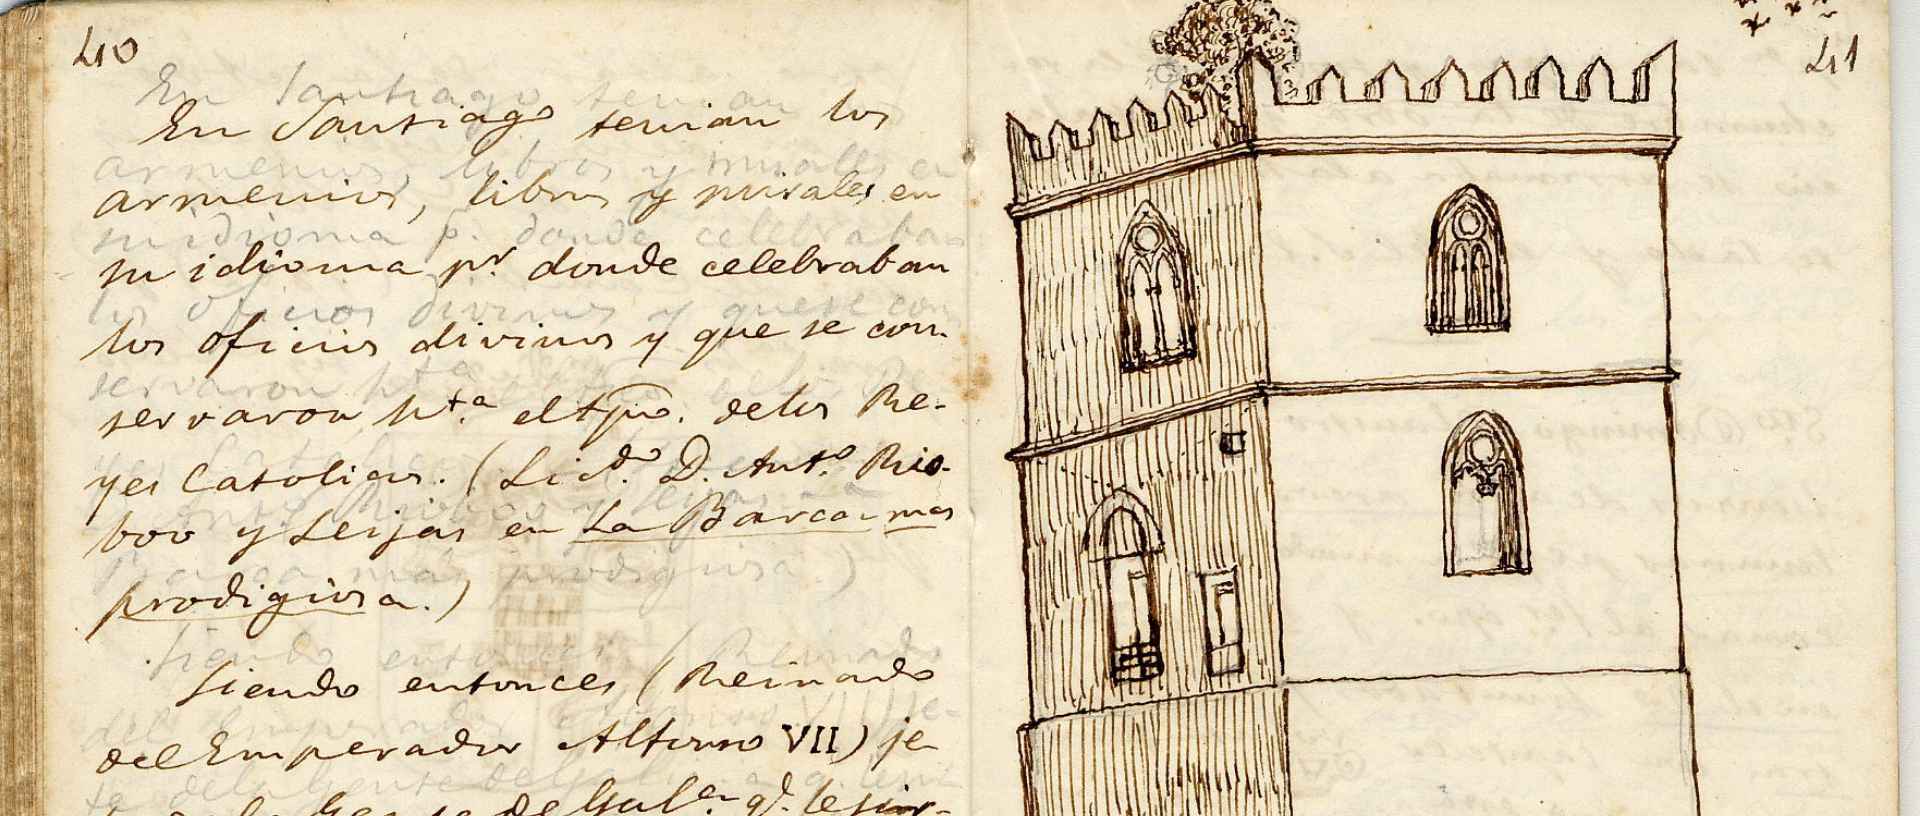 40
En Santiago tenian los
armenios, libros y misales en
su idioma pr. donde celebraban
los oficios divinos y que se con-
servaron hta. el tpo. delos Re-
yes Catolicos. (Licdo. D. Anto. Rio-
boo y Seijas en La Barca mas
prodigiosa.)
Siendo entonces (Reinado
del Emperador Alfonso VII) je-
41